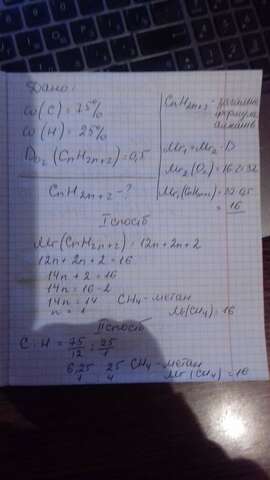 Дано:
ω(C) = 75%
ω(H) = 25%
D O₂ (CnH2n+2) = 0,5
CnH2n+2 - ?
CnH2n+2 - загальна
формула
алканів
Mr₁ = Mr₂ · D
Mr₂(O₂) = 16·2=32
Mr₁(CnH2n+2) = 32·0,5
= 16
I спосіб
Mr(CnH2n+2) = 12n + 2n + 2
12n + 2n + 2 = 16
14n + 2 = 16
14n = 16 - 2
14n = 14
n = 1
CH₄ - метан
Mr(CH₄) = 16
II спосіб
C : H = 75/12 : 25/1
6,25/1 : 25/4
CH₄ - метан
Mr(CH₄) = 16